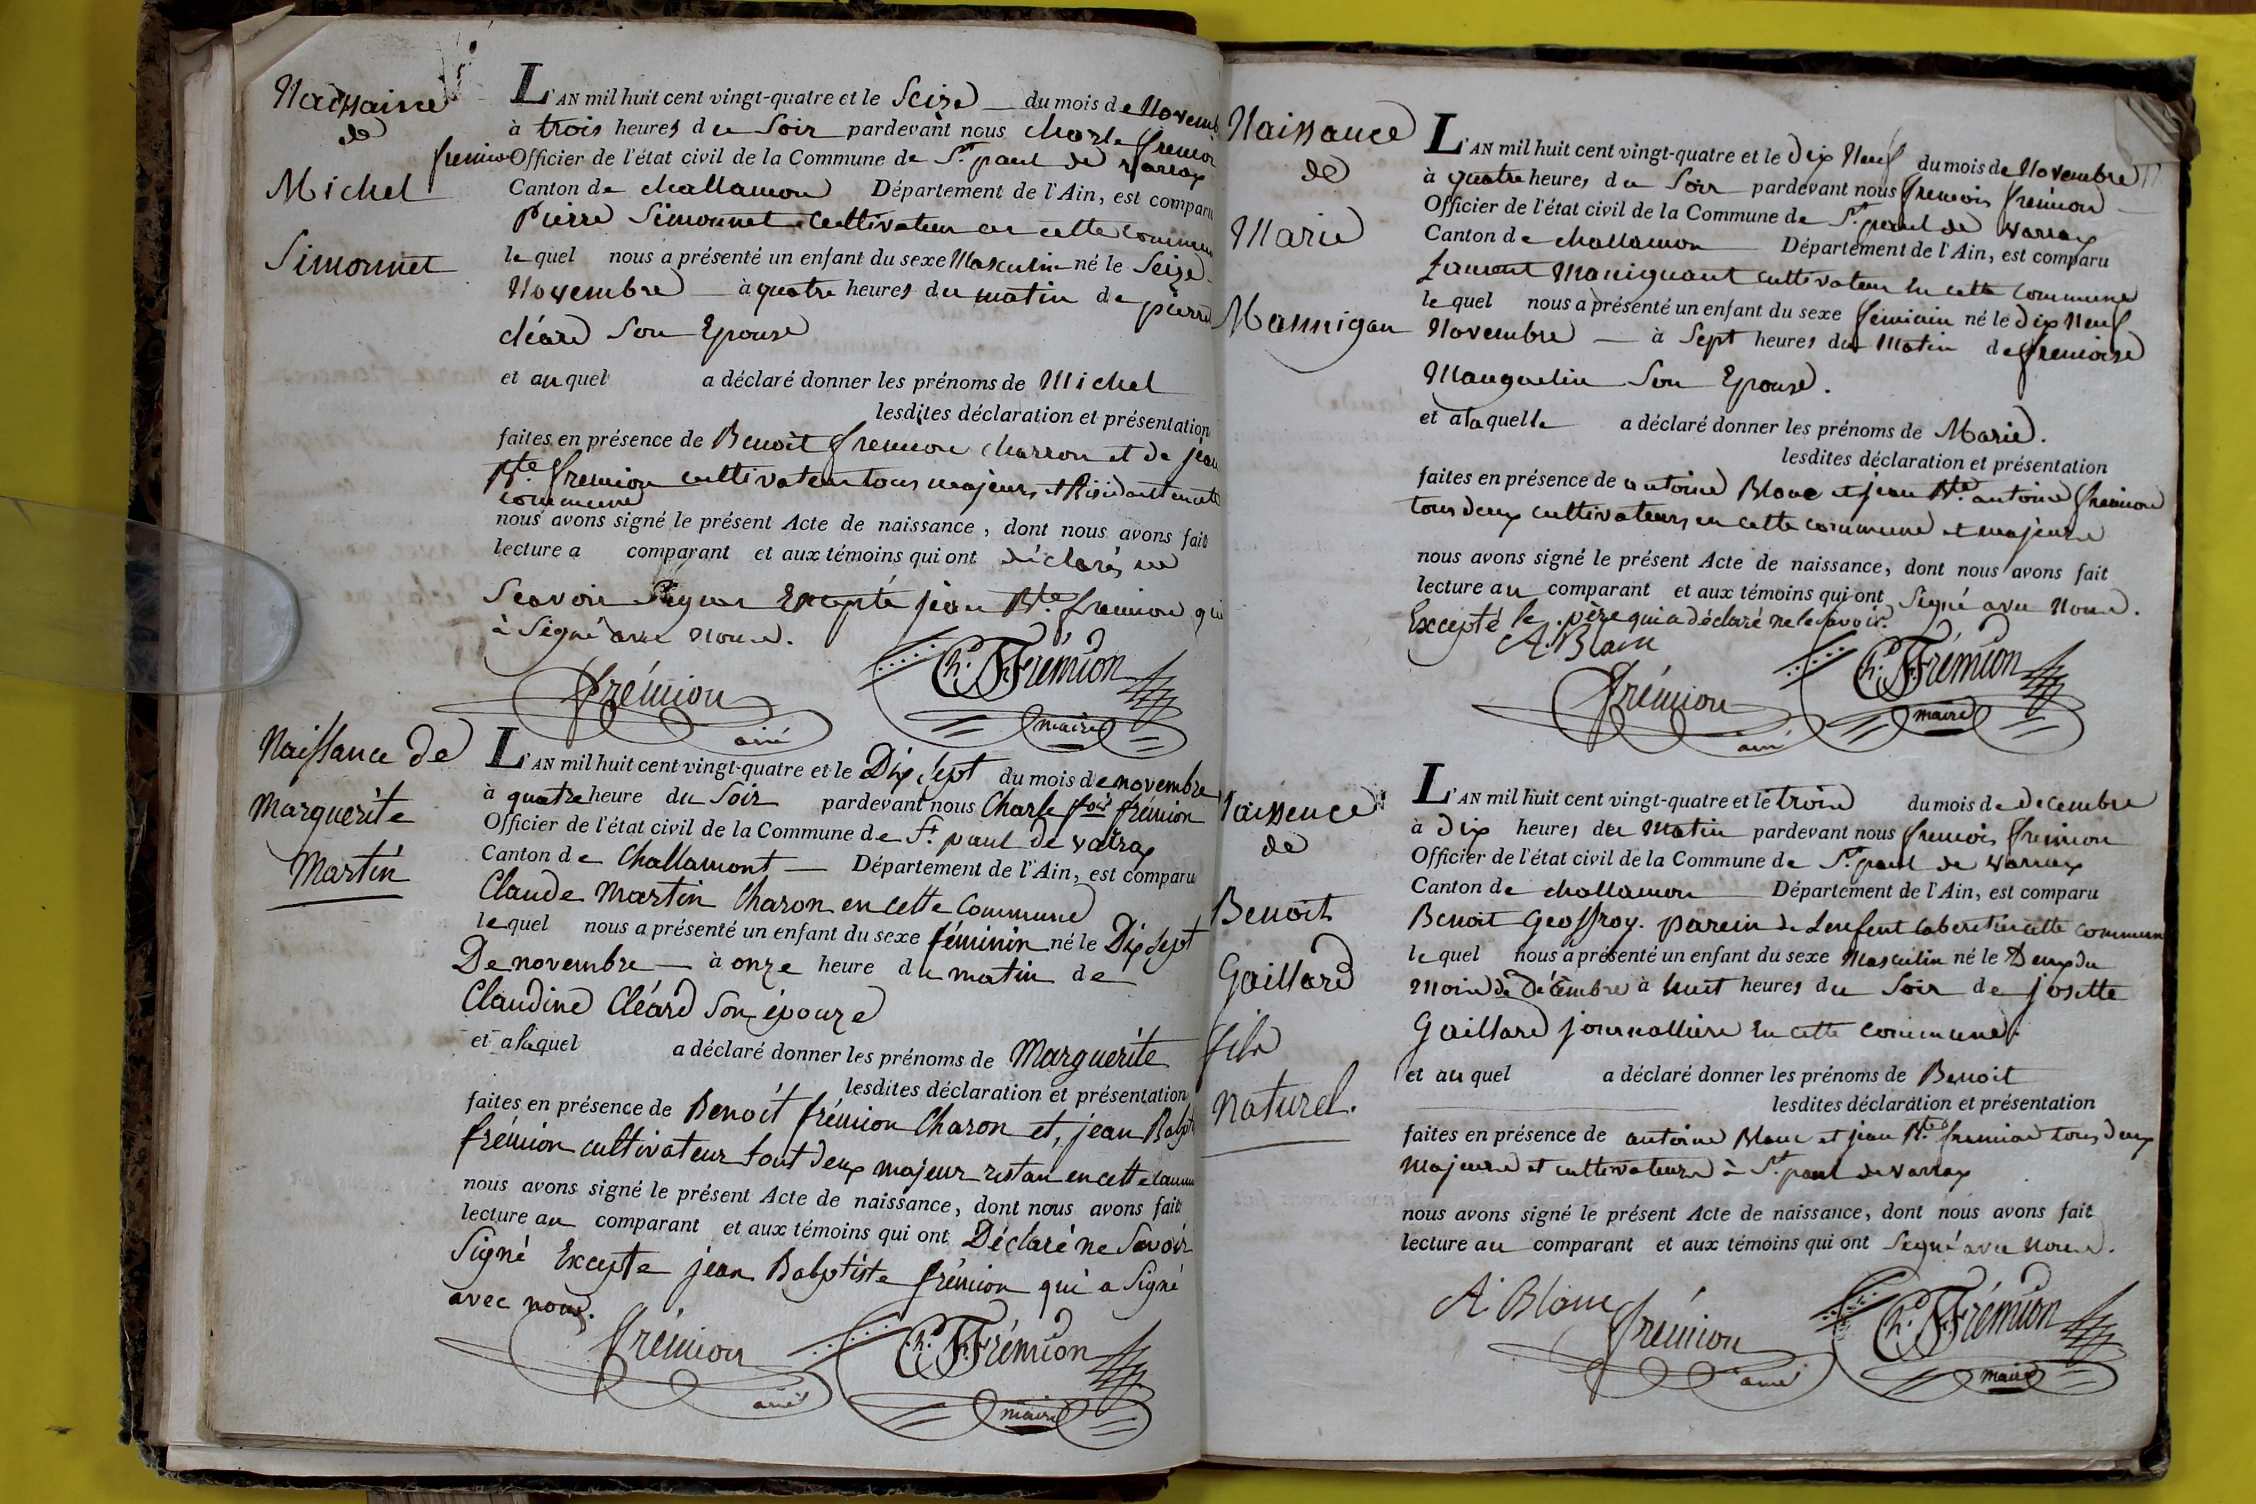 Naissance
de
Michel
Simonnet
L'AN mil huit cent vingt-quatre et le Seize du mois de Novemb
à trois heures du Soir pardevant nous charle fremion
fremion Officier de l'état civil de la Commune de St paul de varax
Canton de challamon Département de l'Ain, est comparu
Pierre Simonnet Cultivateur en cette commune
lequel nous a présenté un enfant du sexe Masculin né le Seize
Novembre à quatre heures du matin de pierre
cléard Son Epouse
et au quel a déclaré donner les prénoms de Michel
lesdites déclaration et présentation
faites en présence de Benoit fremion charron et de jean
Bte fremion cultivateur tous majeurs et Residant en cette
commune
nous avons signé le présent Acte de naissance, dont nous avons fait
lecture a comparant et aux témoins qui ont déclarés ne
Scavoir Signer Excepté jean Bte fremion qui
à Signé avec Nous.
frémion
ainé
Ch. F. Frémion
maire
Naissance de
Marguerite
Martin
L'AN mil huit cent vingt-quatre et le Dix Sept du mois de novembre
à quatre heure du Soir pardevant nous Charle fçois frémion
Officier de l'état civil de la Commune de St paul de varax
Canton de Challamont Département de l'Ain, est comparu
Claude Martin Charon en cette Commune
lequel nous a présenté un enfant du sexe féminin né le Dix Sept
De novembre à onze heure du matin de
Claudine Cléard Son épouze
et a laquel a déclaré donner les prénoms de Marguerite
lesdites déclaration et présentation
faites en présence de Benoit frémion Charon et, jean Babpte
frémion cultivateur tout deux majeur restan en cette commu
nous avons signé le présent Acte de naissance, dont nous avons fait
lecture au comparant et aux témoins qui ont Déclaré ne Savoir
Signé Excepte jean Babptiste frémion qui a Signé
avec nous.
frémion
ainé
Ch. F. Frémion
maire
Naissance
de
Marie
Mannigan
L'AN mil huit cent vingt-quatre et le dix Neuf du mois de Novembre
à quatre heures du Soir pardevant nous francois frémion
Officier de l'état civil de la Commune de St paul de varax
Canton de challamon Département de l'Ain, est comparu
Laurent Maniguant cultivateur En cette commune
lequel nous a présenté un enfant du sexe féminin né le dix Neuf
Novembre à Sept heures du Matin de francoise
Manguelin Son Epouse.
et a laquelle a déclaré donner les prénoms de Marie.
lesdites déclaration et présentation
faites en présence de antoine Blanc et jean Bte antoine fremion
tous deux cultivateurs en cette commune et majeure
nous avons signé le présent Acte de naissance, dont nous avons fait
lecture au comparant et aux témoins qui ont Signé avec Nous.
Excepté le père qui a déclaré ne le savoir.
A. Blanc
frémion
ainé
Ch. F. Frémion
maire
Naissence
de
Benoit
Gaillard
fils
naturel.
L'AN mil huit cent vingt-quatre et le trois du mois de decembre
à dix heures du Matin pardevant nous francois fremion
Officier de l'état civil de la Commune de St paul de varax
Canton de challamon Département de l'Ain, est comparu
Benoit Geoffroy parein de Lenfent en cette commune
lequel nous a présenté un enfant du sexe Masculin né le Deux du
Mois de Décembre à huit heures du Soir de josette
Gaillard journalliere En cette commune.
et au quel a déclaré donner les prénoms de Benoit
lesdites déclaration et présentation
faites en présence de antoine Blanc et jean Bte fremion tous deux
Majeurs et cultivateurs à St paul de varax
nous avons signé le présent Acte de naissance, dont nous avons fait
lecture au comparant et aux témoins qui ont Signé avec Nous.
A. Blanc
frémion
ainé
Ch. F. Frémion
maire